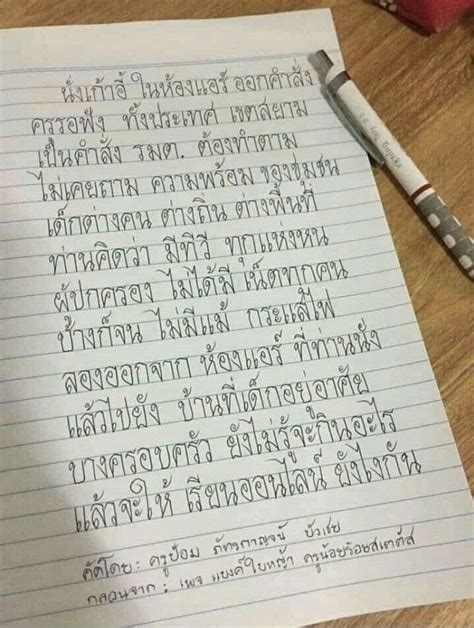 นั่งเก้าอี้ ในห้องแอร์ ออกคำสั่ง
ครูรอฟัง ทั้งประเทศ เขตสยาม
เป็นคำสั่ง รมต. ต้องทำตาม
ไม่เคยถาม ความพร้อม ของชุมชน
เด็กต่างคน ต่างถิ่น ต่างพื้นที่
ท่านคิดว่า มีทีวี ทุกแห่งหน
ผู้ปกครอง ไม่ได้มี เน็ตทุกคน
บ้างก็จน ไม่มีแม้ กระแสไฟ
ลองออกจาก ห้องแอร์ ที่ท่านนั่ง
แล้วไปยัง บ้านที่เด็กอยู่อาศัย
บางครอบครัว ยังไม่รู้จะกินอะไร
แล้วจะให้ เรียนออนไลน์ ยังไงกัน
คัดโดย: ครูป้อม ภัทรกาญจน์
กลอนจาก: เพจ แบงค์ใบหญ้า ครูน้อยร้อยสเตตัส